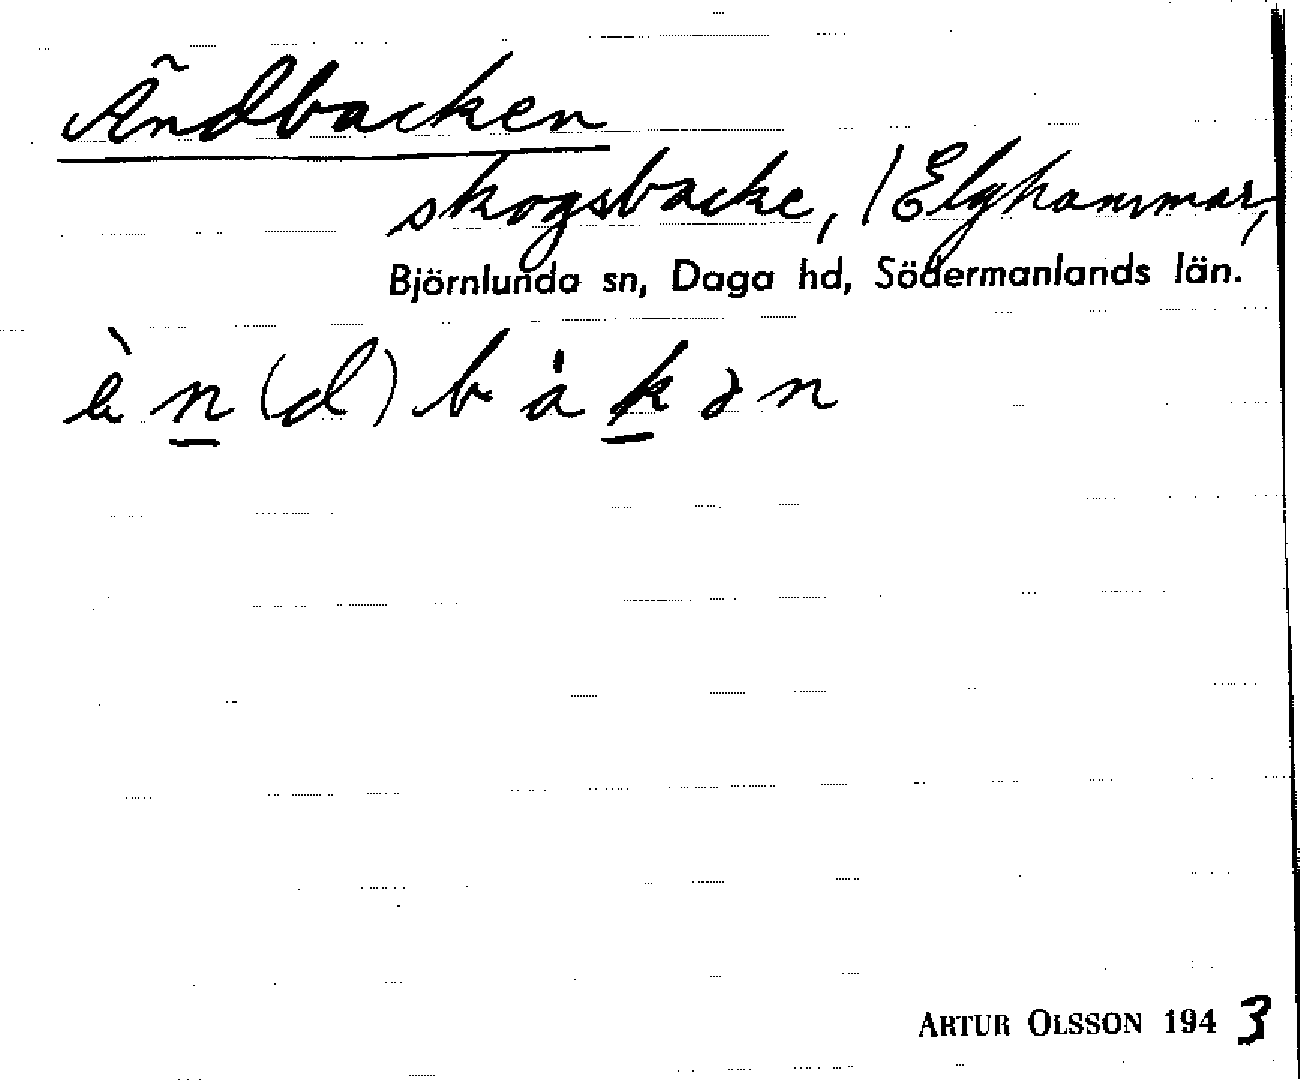 Ändbacken
skogsbacke, /Elghammar,
Björnlunda sn, Daga hd, Södermanlands län.
ὲn̲(d)bȧk̲ən
ARTUR OLSSON 1943